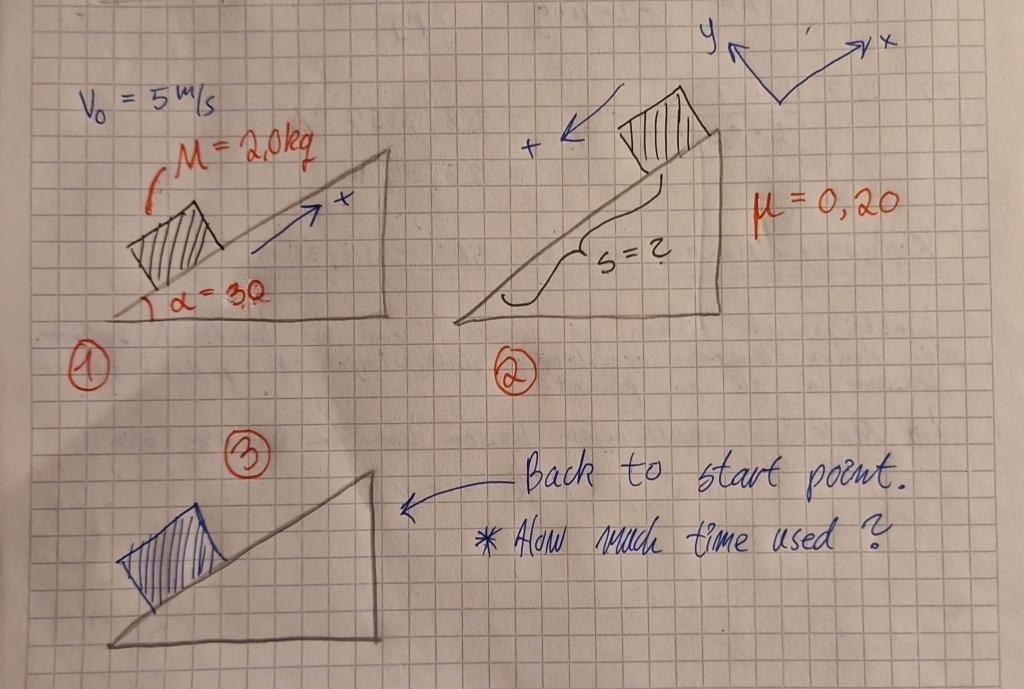 V₀ = 5 m/s
M = 2,0kg
x
α = 30
①
y
x
+
s = ?
μ = 0,20
②
③
Back to start point.
* How much time used ?